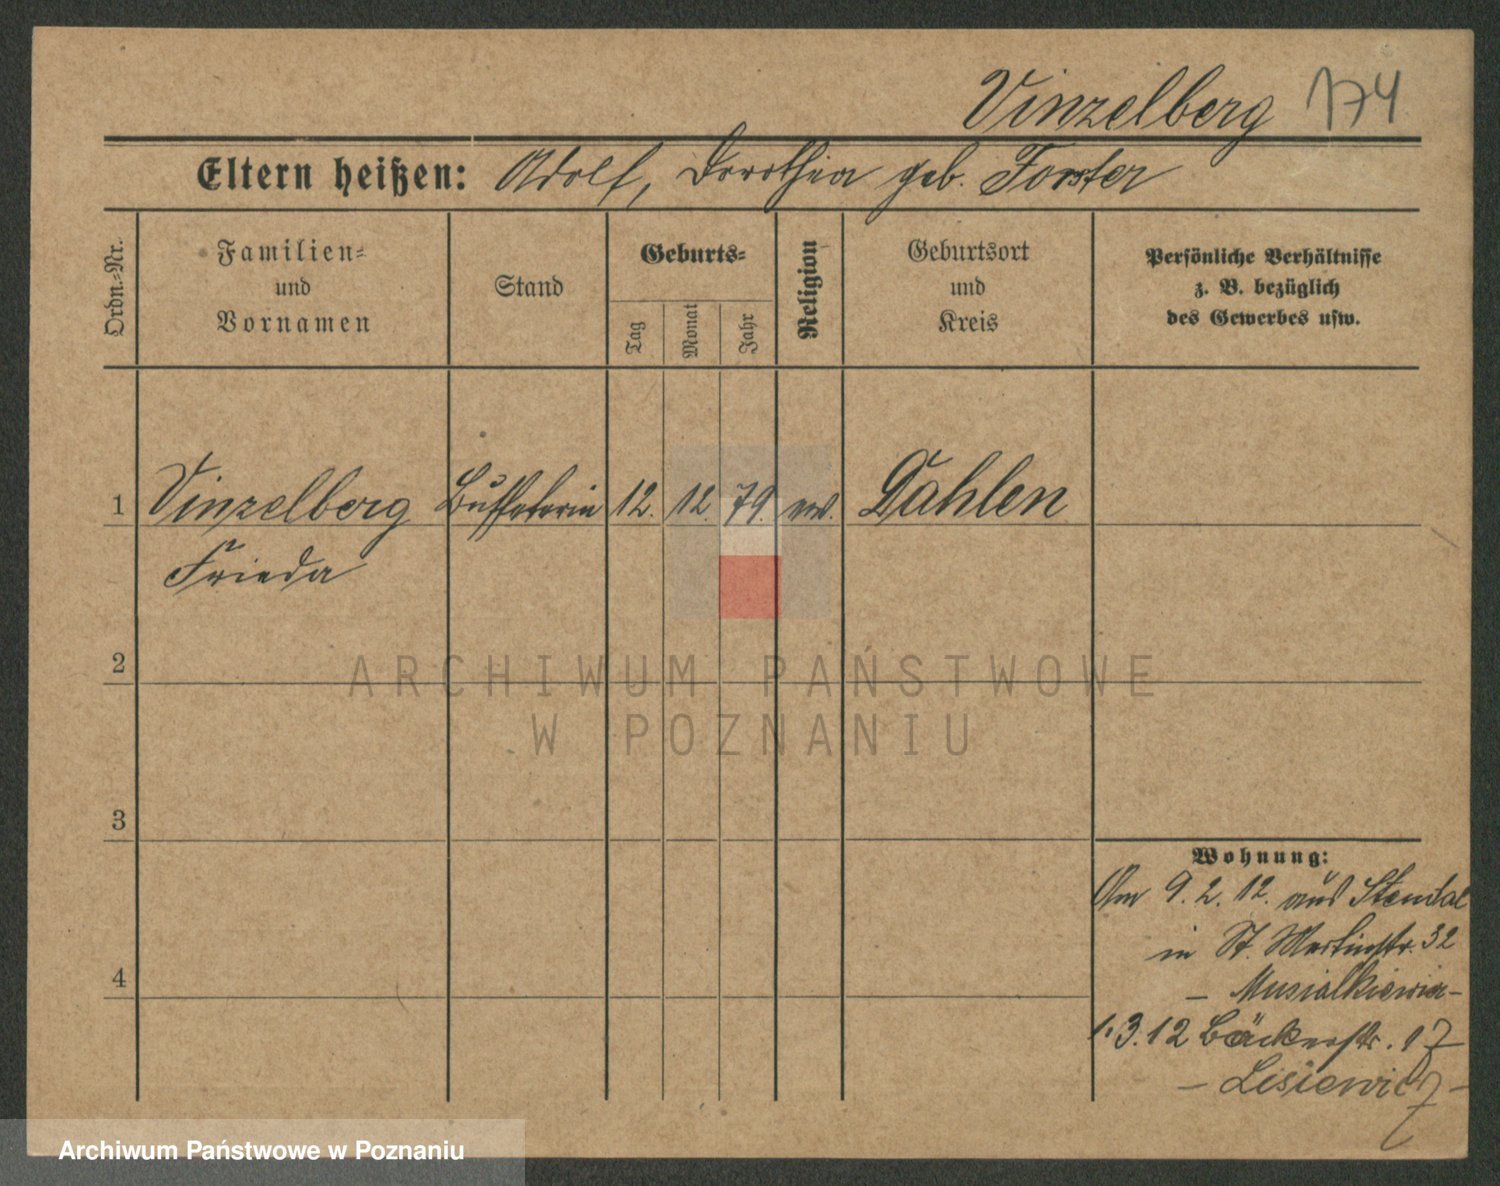 Vinzelberg 174
Eltern heißen: Adolf, Dorothea geb. Forster
Ordn.-Nr.
Familien-
und
Vornamen
Stand
Geburts-
Tag
Monat
Jahr
Religion
Geburtsort
und
Kreis
Persönliche Verhältnisse
z. B. bezüglich
des Gewerbes usw.
1 Vinzelberg Buffeterin 12. 12. 79. ev. Dahlen
Frieda
2
ARCHIWUM PAŃSTWOWE
W POZNANIU
3
4
Wohnung:
Am 9. 2. 12. aus Stendal
in St. Martinstr. 32
– Musialkiewicz –
1. 3. 12 Bäckerstr. 17
– Lisiewicz –
Archiwum Państwowe w Poznaniu